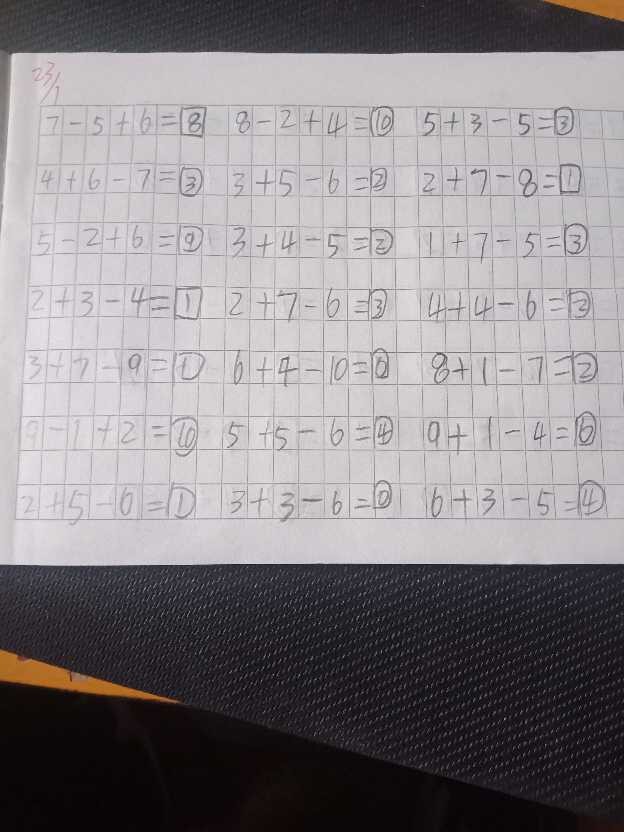 23/1
7-5+6=8 8-2+4=10 5+3-5=3
4+6-7=3 3+5-6=2 2+7-8=1
5-2+6=9 3+4-5=2 1+7-5=3
2+3-4=1 2+7-6=3 4+4-6=2
3+7-9=1 6+4-10=0 8+1-7=2
9-1+2=10 5+5-6=4 9+1-4=6
2+5-6=1 3+3-6=0 6+3-5=4